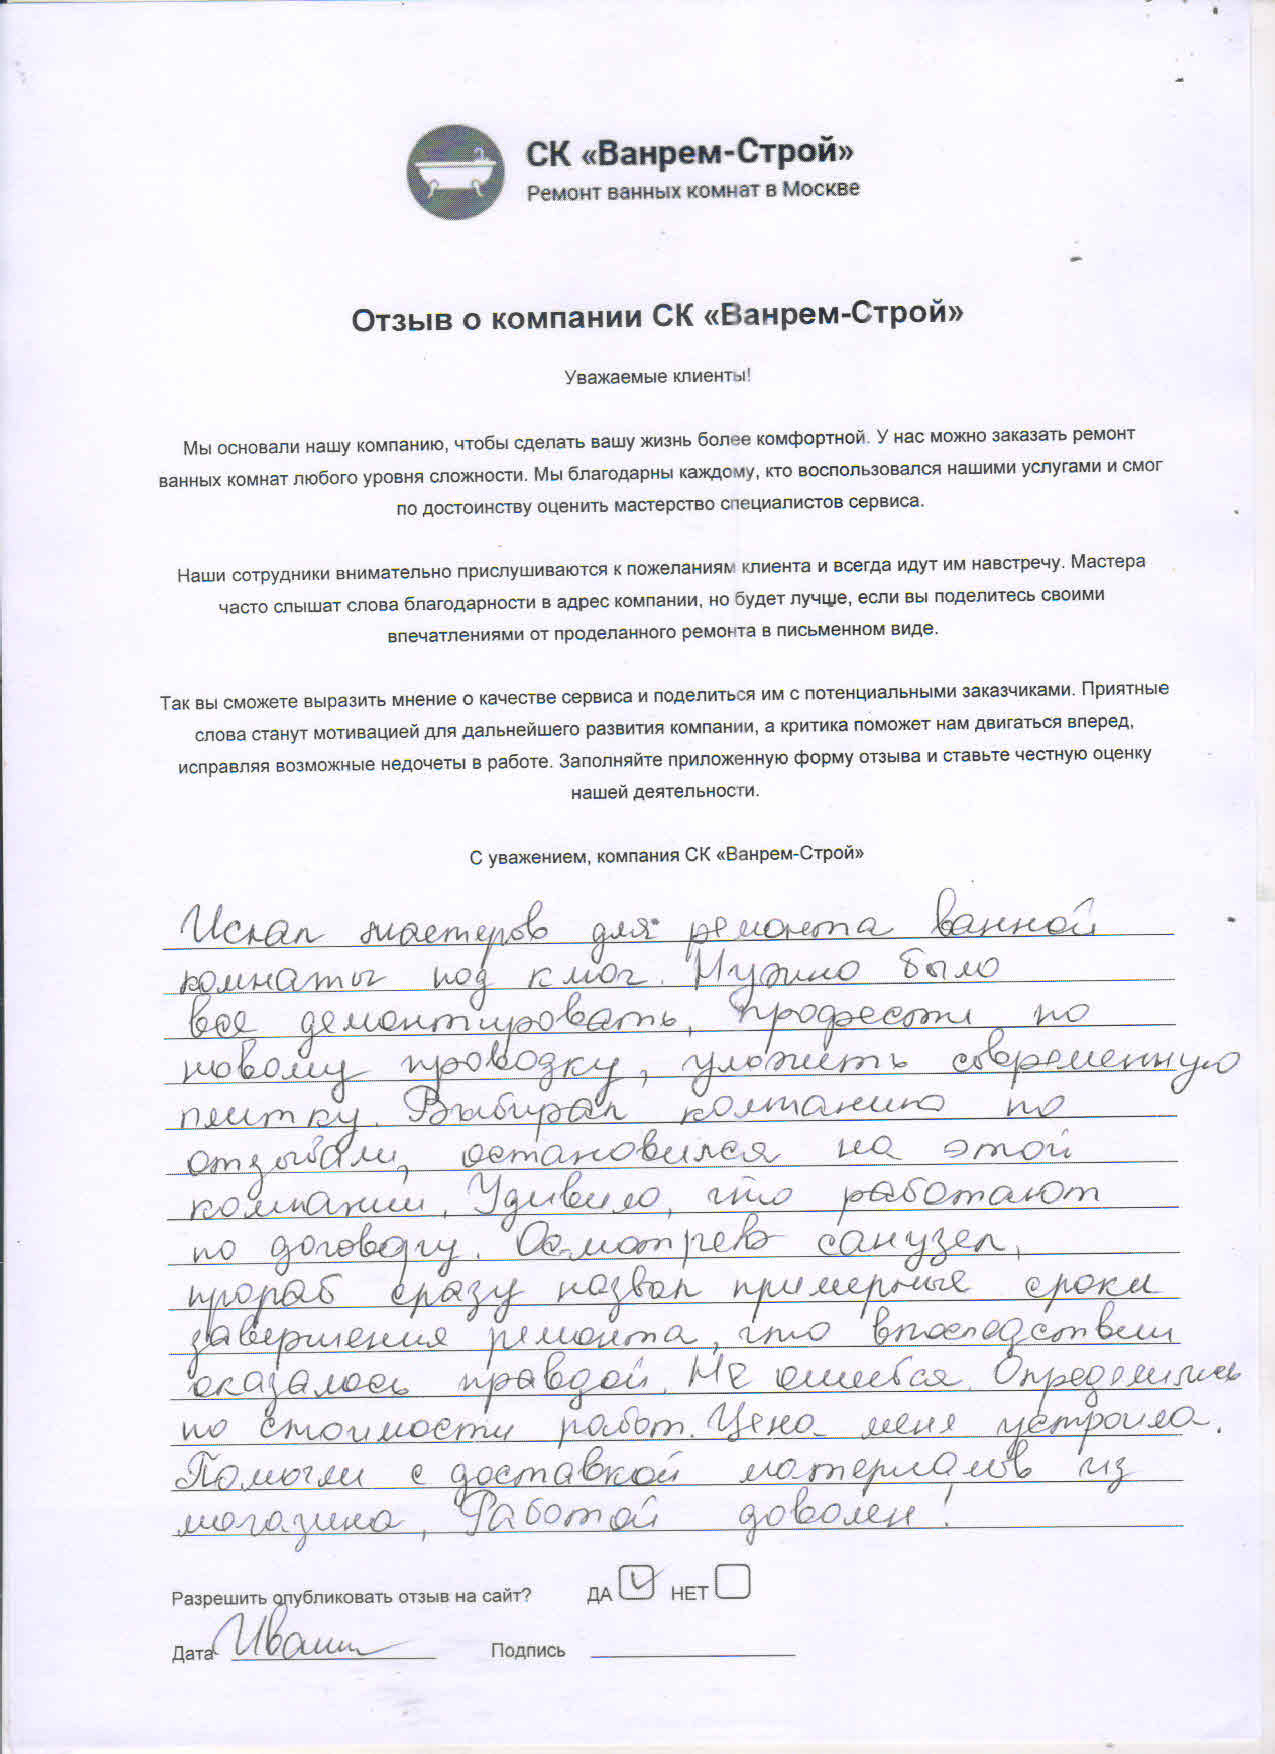 СК «Ванрем-Строй»
Ремонт ванных комнат в Москве
Отзыв о компании СК «Ванрем-Строй»
Уважаемые клиенты!
Мы основали нашу компанию, чтобы сделать вашу жизнь более комфортной. У нас можно заказать ремонт
ванных комнат любого уровня сложности. Мы благодарны каждому, кто воспользовался нашими услугами и смог
по достоинству оценить мастерство специалистов сервиса.
Наши сотрудники внимательно прислушиваются к пожеланиям клиента и всегда идут им навстречу. Мастера
часто слышат слова благодарности в адрес компании, но будет лучше, если вы поделитесь своими
впечатлениями от проделанного ремонта в письменном виде.
Так вы сможете выразить мнение о качестве сервиса и поделиться им с потенциальными заказчиками. Приятные
слова станут мотивацией для дальнейшего развития компании, а критика поможет нам двигаться вперед,
исправляя возможные недочеты в работе. Заполняйте приложенную форму отзыва и ставьте честную оценку
нашей деятельности.
С уважением, компания СК «Ванрем-Строй»
Искал мастеров для ремонта ванной
комнаты под ключ. Нужно было
все демонтировать, провести по
новому проводку, уложить современную
плитку. Выбирал компанию по
отзывам, остановился на этой
компании. Удивило, что работают
по договору. Осмотрев санузел,
прораб сразу назвал примерные сроки
завершения ремонта, что впоследствии
оказалось правдой. Не ошибся. Определились
по стоимости работ. Цена меня устроила.
Помогли с доставкой материалов из
магазина, Работой доволен!
Разрешить опубликовать отзыв на сайт? ДА НЕТ
Дата Подпись